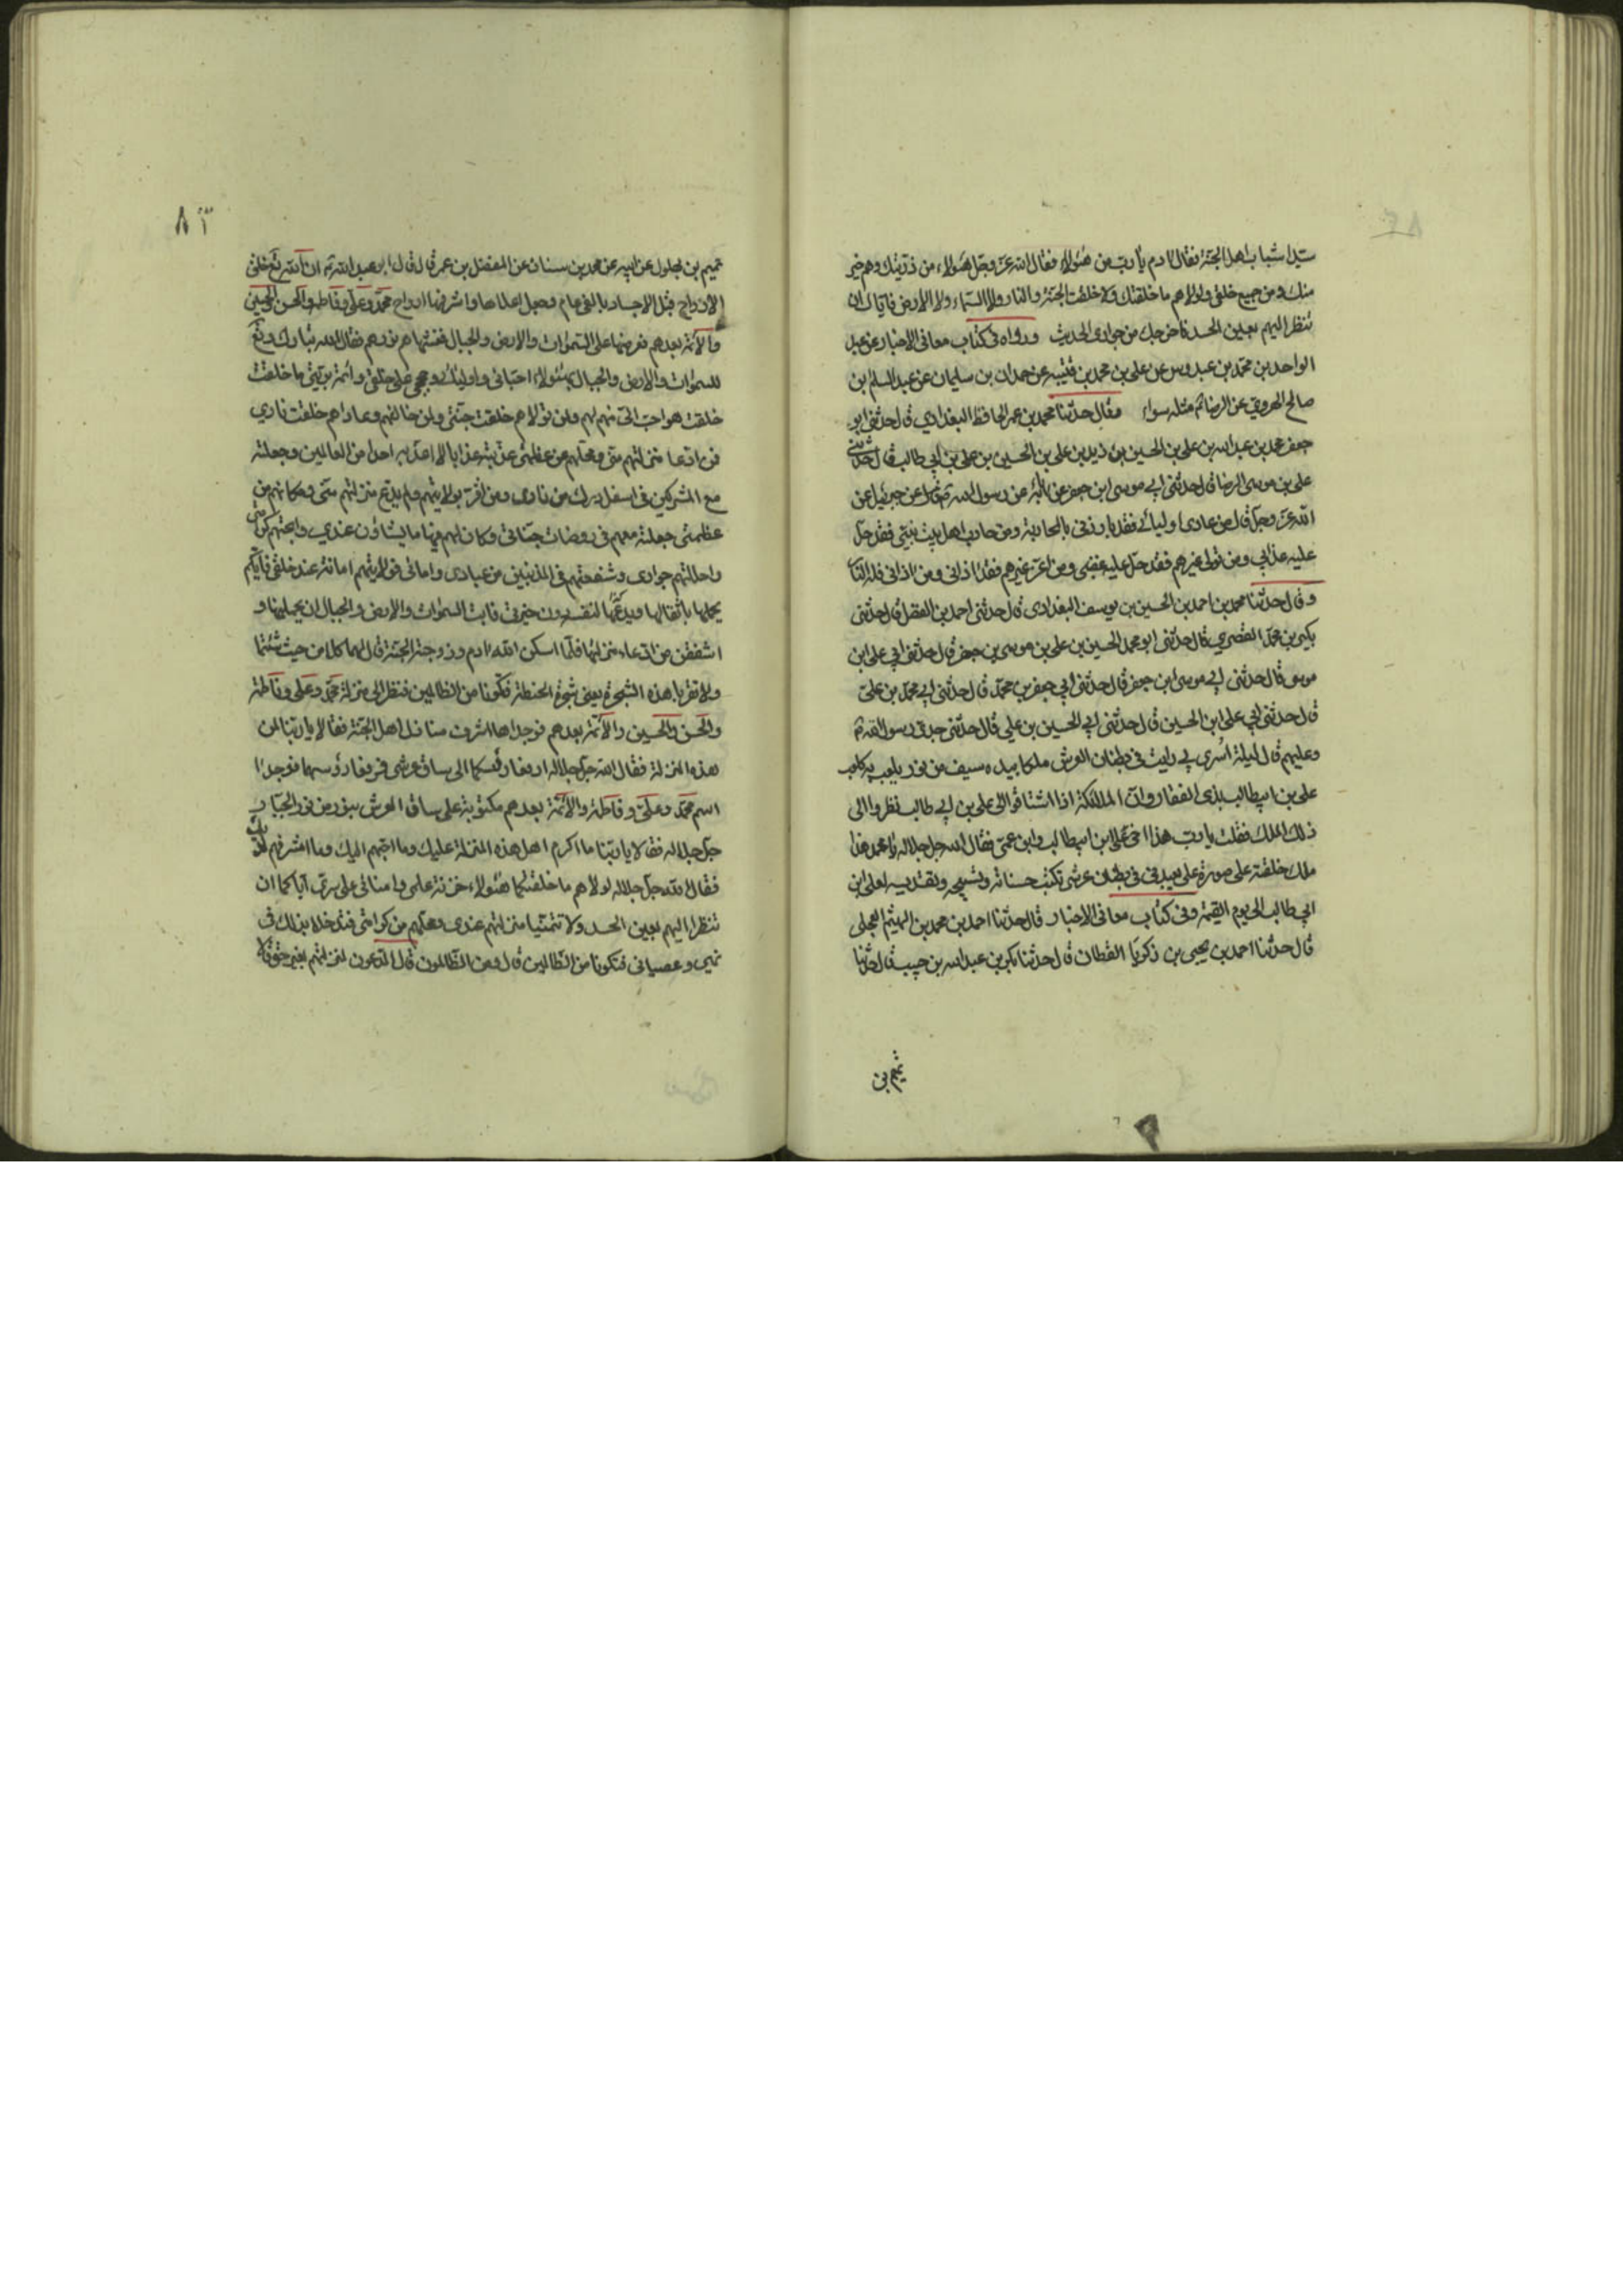 سيدا شباب اهل الجنة فقال ادم يا رب من هؤلاء فقال الله عز وجل هؤلاء من ذريتك وهم خير
منك ومن جميع خلقى ولولاهم ما خلقتك ولا خلقت الجنة والنار ولا السماء ولا الارض فاياك ان
تنظر اليهم بعين الحسد فاخرجك من جوارى الحديث ورواه فى كتاب معانى الاخبار عن عبد
الواحد بن محمد بن عبدوس عن على بن محمد بن قتيبه عن حمدان بن سليمان عن عبد السلم بن
صالح الهروي عن الرضا مثله سواء وقال حدثنا محمد بن عمر الحافظ البغدادي قال حدثنى ابو
جعفر محمد بن عبد الله بن على بن الحسين بن زيد بن على بن الحسين بن على بن ابي طالب قال حدثني
على بن موسى الرضا قال حدثنى ابي موسى ابن جعفر عن عن رسول الله عن جبرئيل عن
الله عز وجل قال من عادى اوليائي فقد بارزنى بالمحاربة ومن حارب اهل بيت نبيي فقد حل
عليه عذابي ومن تولى غيرهم فقد حل عليه غضبى ومن اعز غيرهم فقد اذانى ومن اذانى فله النار
وقال حدثنا محمد بن احمد بن الحسين بن يوسف البغدادى قال حدثنى احمد بن الفضل قال حدثنى
بكر بن محمد القصري قال حدثنى ابو محمد الحسين بن على بن موسى بن جعفر قال حدثنى ابي على ابن
موسى قال حدثنى ابي موسى ابن جعفر قال حدثنى ابي جعفر بن محمد قال حدثنى ابي محمد بن على
قال حدثنى ابي على ابن الحسين قال حدثنى ابي الحسين بن علي قال حدثنى جدى رسول الله
وعليهم قال ليلة اسرى بي رايت فى بطنان العرش ملكا بيده سيف من نور يلعب به كما يلعب
على بن ابيطالب بذى الفقار وان الملائكة اذا اشتاقوا الى على بن ابي طالب نظروا الى
ذلك الملك فقلت يا رب هذا اخى على ابن ابيطالب وابن عمى فقال الله جل جلاله يا محمد هذا
ملك خلقته على صورة على يعبدنى فى بطنان عرشى تكتب حسناته وتسبيحه وتقديسه لعلى ابن
ابي طالب الى يوم القيمة وفى كتاب معانى الاخبار قال حدثنا احمد بن محمد بن الهيثم العجلى
قال حدثنا احمد بن يحيى بن زكريا القطان قال حدثنا بكر بن عبد الله بن حبيب قال حدثنا
تميم بن
تميم بن بهلول عن ابيه عن محمد بن سنان عن المفضل بن عمر قال قال ابو عبد الله ان الله تع خلق
الارواح قبل الاجساد بالفى عام فجعل اعلاها واشرفها ارواح محمد وعلى وفاطمة والحسن والحسين
والائمة بعدهم فعرضها على السموات والارض والجبال فغشيها نورهم فقال الله تبارك وتع
للسموات والارض والجبال هؤلاء احبائى واوليائى وحججى على خلقى وائمة بريتى ما خلقت
خلقت هو احب الى منهم لهم ولمن تولاهم خلقت جنتى ولمن خالفهم وعاداهم خلقت نارى
فمن ادعا منزلتهم منى ومحلهم من عظمتى عذبته عذابا لا اعذبه احدا من العالمين وجعلته
مع المشركين فى اسفل درك من نارى ومن اقر بولايتهم ولم يدع منزلتهم منى ومكانهم من
عظمتى جعلته معهم فى روضات جناتى وكان لهم فيها ما يشاؤن عندى وابحتهم كرامتى
واحللتهم جوارى وشفعتهم فى المذنبين من عبادى وامائى فولايتهم امانة عند خلقى فايكم
يحملها باثقالها ويدعيها لنفسه دون خيرتى فابت السموات والارض والجبال ان يحملنها و
اشفقن من ادعاء منزلتها فلما اسكن الله ادم وزوجته الجنة قال لهما كلا من حيث شئتما
ولا تقربا هذه الشجرة يعنى شجرة الحنطة فتكونا من الظالمين فنظر الى منزلة محمد وعلى وفاطمة
والحسن والحسين والائمة بعدهم فوجداها اشرف منازل اهل الجنة فقالا يا ربنا لمن
هذه المنزلة فقال الله جل جلاله ارفعا رؤسكما الى ساق عرشى فرفعا رؤسهما فوجدا
اسم محمد وعلى وفاطمة والائمة بعدهم مكتوبة على ساق العرش بنور من نور الجبار
جل جلاله فقالا يا ربنا ما اكرم اهل هذه المنزلة عليك وما احبهم اليك وما اشرفهم لديك
فقال الله جل جلاله لولاهم ما خلقتكما هؤلاء خزنة علمى وامنائى على سرى اياكما ان
تنظرا اليهم بعين الحسد ولا تتمنيا منزلتهم عندى ومحلهم من كرامتى فتدخلا بذلك فى
نهيى وعصيانى فتكونا من الظالمين قال ومن الظالمون قال المدعون لمنزلتهم بغير حق قالا